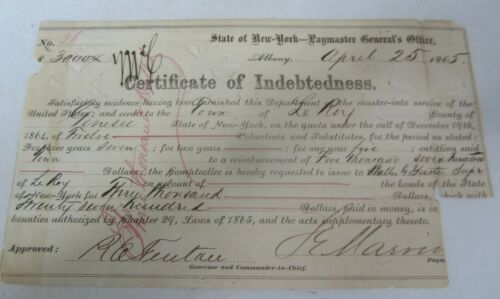 State of New-York---Paymaster General's Office,
No. 56
$ 3000x Albany, April 25 1865
Certificate of Indebtedness.
Satisfactory evidence having been furnished this Department of the muster-into service of the
United States, and credit to the Town of Le Roy County of
Genesee State of New-York, on the quota under the call of December 19th,
1864, of Twelve Volunteers and Substitutes, for the period as stated:
For three years Seven; for two years for one year five; entitling said
Town to a reimbursement of Five thousand seven hundred
Dollars, the Comptroller is hereby requested to issue to Supr
of Le Roy on account of the bonds of the State
of New-York for Three thousand Dollars, which with
Twenty seven hundred Dollars, paid in money, is in
bounties authorized by Chapter 29, Laws of 1865, and the acts supplementary thereto.
Approved:
R E Fenton
Governor and Commander-in-Chief.
Paym